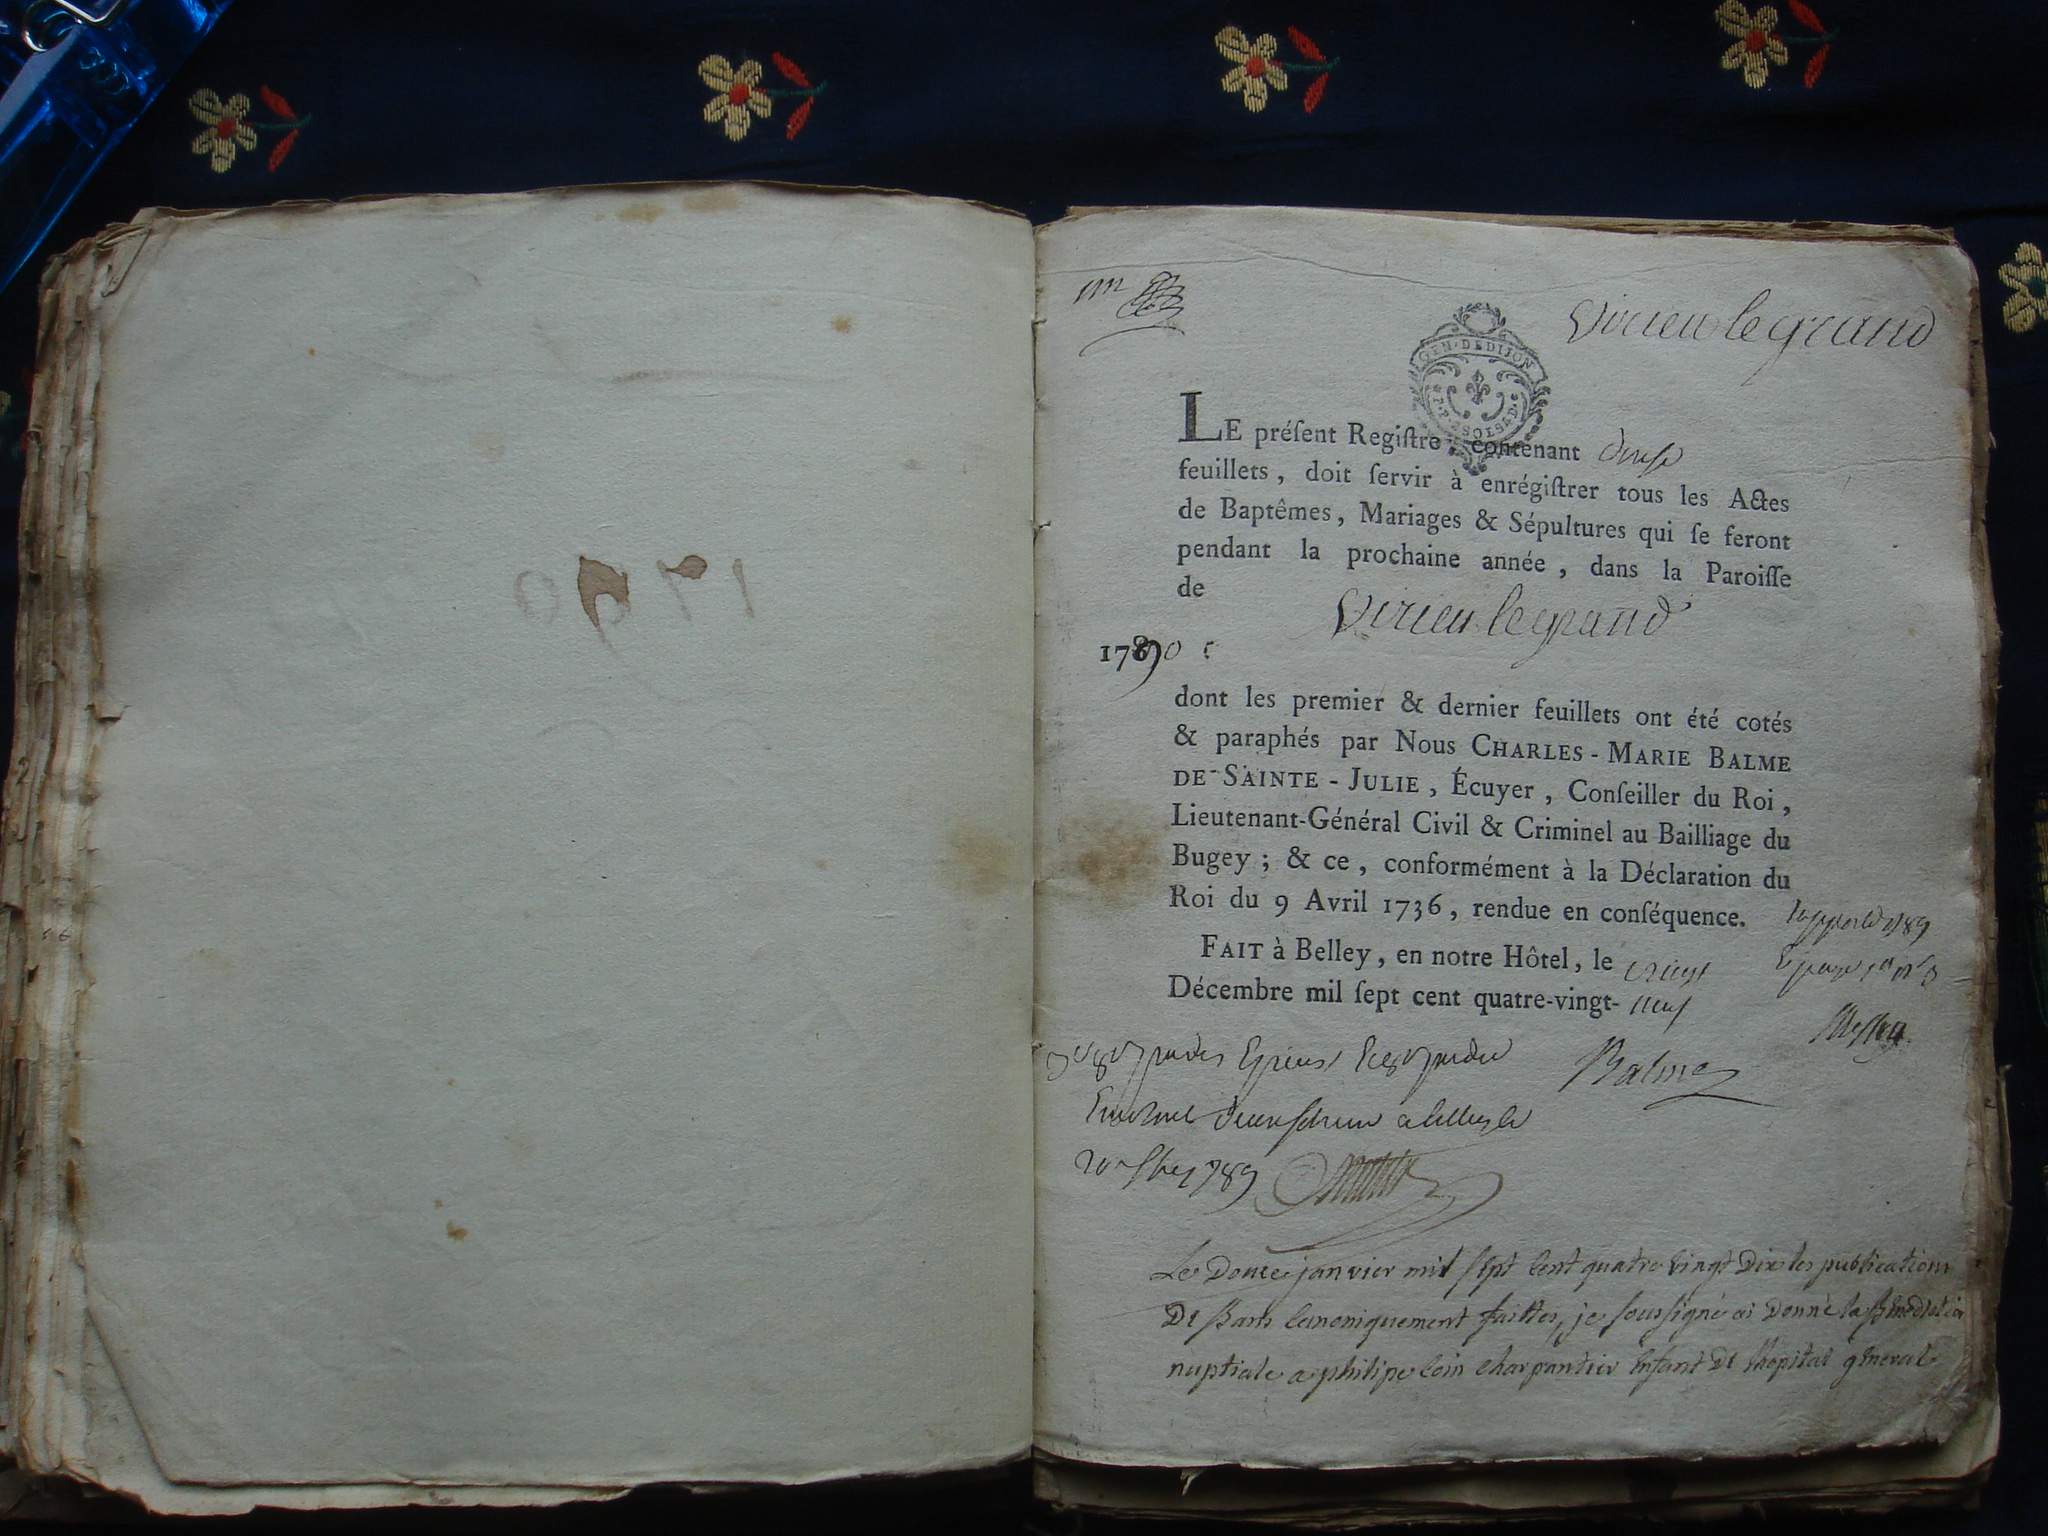 1790
un
Virieu le grand
GEN. DE DIJON
LE préſent Regiſtre, contenant douse
feuillets, doit ſervir à enrégiſtrer tous les Actes
de Baptêmes, Mariages & Sépultures qui ſe feront
pendant la prochaine année, dans la Paroiſſe
de Virieu le grand
1790
dont les premier & dernier feuillets ont été cotés
& paraphés par Nous CHARLES-MARIE BALME
DE-SAINTE-JULIE, Écuyer, Conſeiller du Roi,
Lieutenant-Général Civil & Criminel au Bailliage du
Bugey; & ce, conformément à la Déclaration du
Roi du 9 Avril 1736, rendue en conſéquence.
FAIT à Belley, en notre Hôtel, le vingt
Décembre mil ſept cent quatre-vingt-neuf
Balme
1789
Le Douze janvier mil sept cent quatre vingt Dix les publications
De Bans canoniquement faittes, je soussigné ai Donné la Bénédictio
nuptiale a philipe loin charpantier enfant De l'hopital general